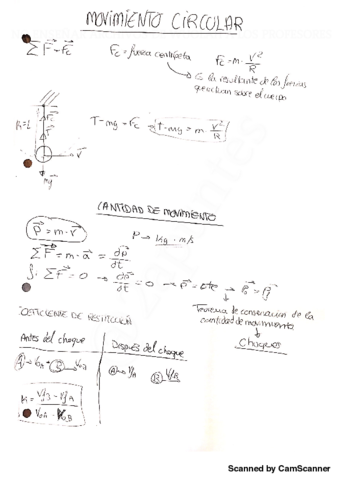 MOVIMIENTO CIRCULAR
ΣF⃗ = F⃗c
Fc = fuerza centrípeta
Fc = m · V²/R
Es la resultante de las fuerzas
que actúan sobre el cuerpo
R=L
T - mg = Fc
T - mg = m · V²/R
mg
CANTIDAD DE MOVIMIENTO
P⃗ = m · v⃗
P → kg · m/s
ΣF⃗ = m · a⃗ = dp⃗/dt
Si ΣF⃗ = 0 → dp⃗/dt = 0 → p⃗ = cte → p⃗₀ = p⃗f
Teorema de conservación de la
cantidad de movimiento
Choques
COEFICIENTE DE RESTITUCIÓN
Antes del choque
Después del choque
Scanned by CamScanner